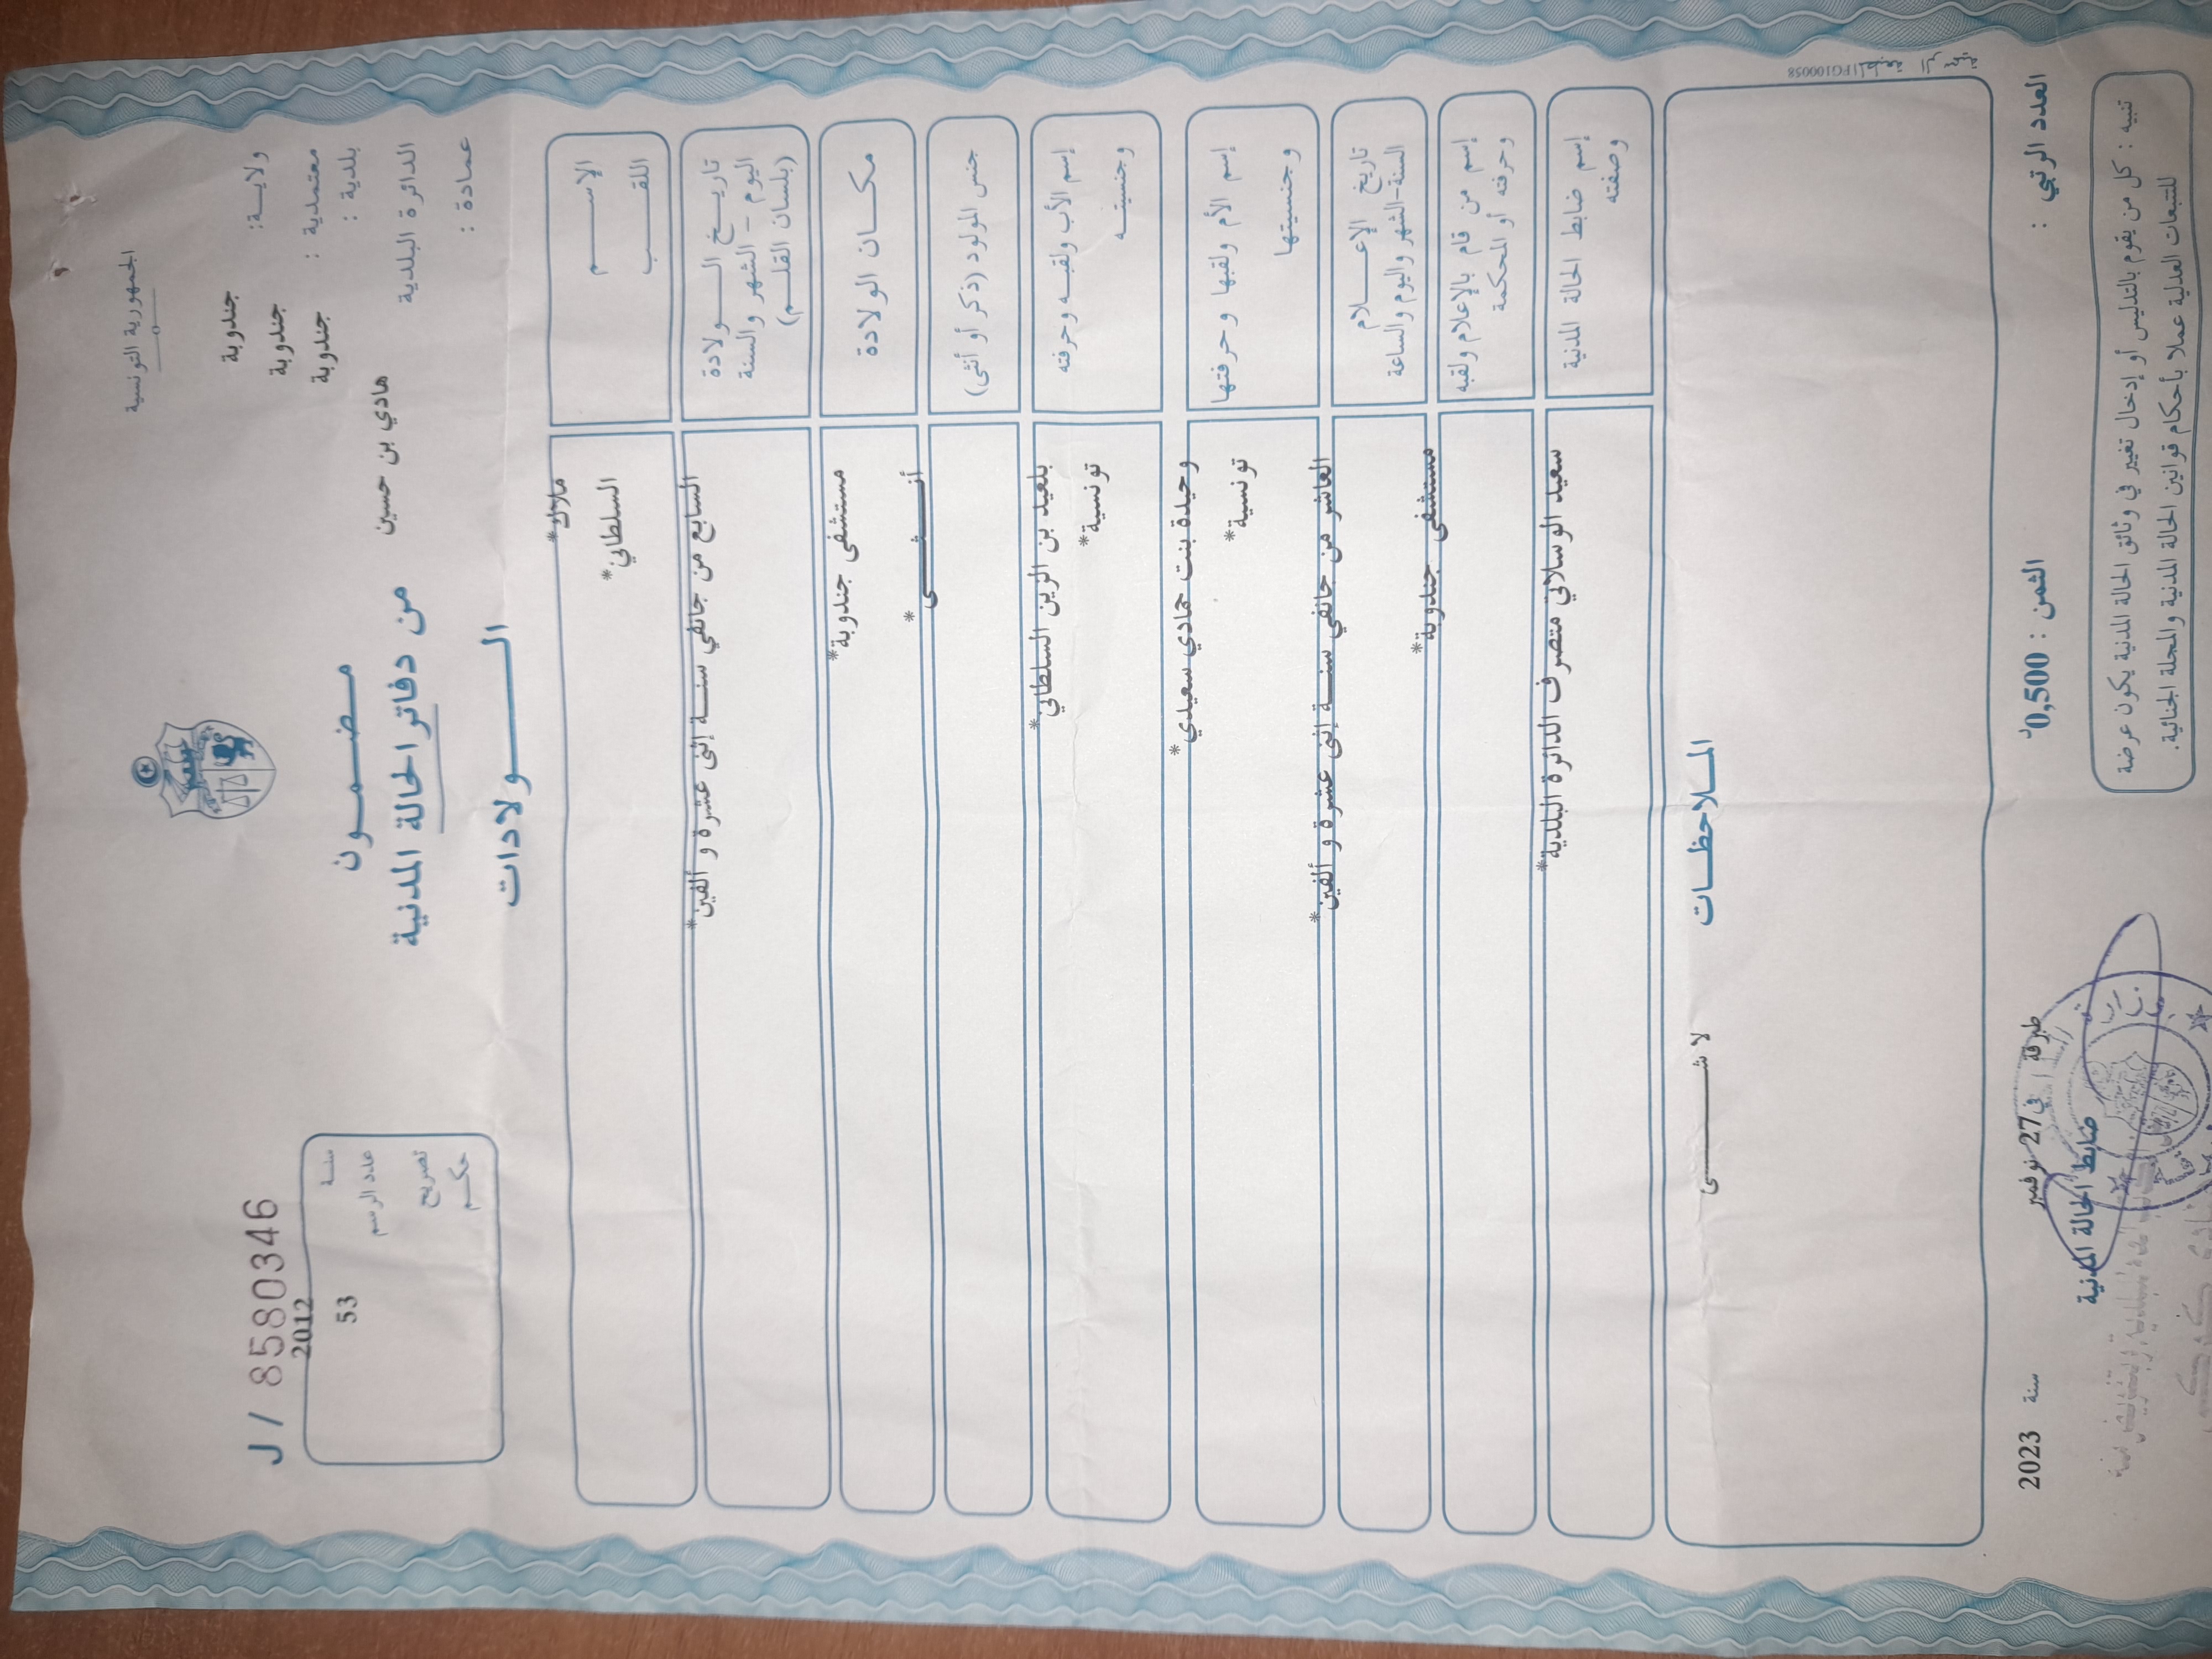 الجمهورية التونسية
ولاية: جندوبة
معتمدية : جندوبة
بلدية : جندوبة
الدائرة البلدية هادي بن حسين
عمادة :
مضمون
من دفاتر الحالة المدنية
الولادات
J / 8580346
سنة 2012
عدد الرسم 53
تصريح
حكم
الإسم ملاك*
اللقب السلطاني*
تاريخ الولادة
اليوم - الشهر والسنة
(بلسان القلم)
السابع من جانفي سنة إثنى عشرة و ألفين*
مكان الولادة
مستشفى جندوبة*
جنس المولود (ذكر أو أنثى)
أنثى*
إسم الأب ولقبه وحرفته
وجنسيته
بلعيد بن الزين السلطاني*
تونسية*
إسم الأم ولقبها وحرفتها
وجنسيتها
وحيدة بنت حمادي سعيدي*
تونسية*
تاريخ الإعلام
السنة-الشهر واليوم والساعة
العاشر من جانفي سنة إثنى عشرة و ألفين*
إسم من قام بالإعلام ولقبه
وحرفته أو المحكمة
مستشفى جندوبة*
إسم ضابط الحالة المدنية
وصفته
سعيد الوسلاتي متصرف الدائرة البلدية*
الملاحظات
لا شئ
11FG100058
العدد الرتبي :
الثمن : 0,500د
طبرقة في 27 نوفمبر سنة 2023
ضابط الحالة المدنية
تنبيه : كل من يقوم بالتدليس أو إدخال تغيير في وثائق الحالة المدنية يكون عرضة
للتتبعات العدلية عملا بأحكام قوانين الحالة المدنية والمجلة الجنائية.